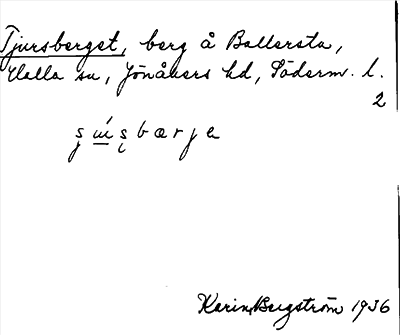 Tjursberget, berg å Ballersta,
Halla sn, Jönåkers hd, Söderm. l.
2
Karin Bergström 1936